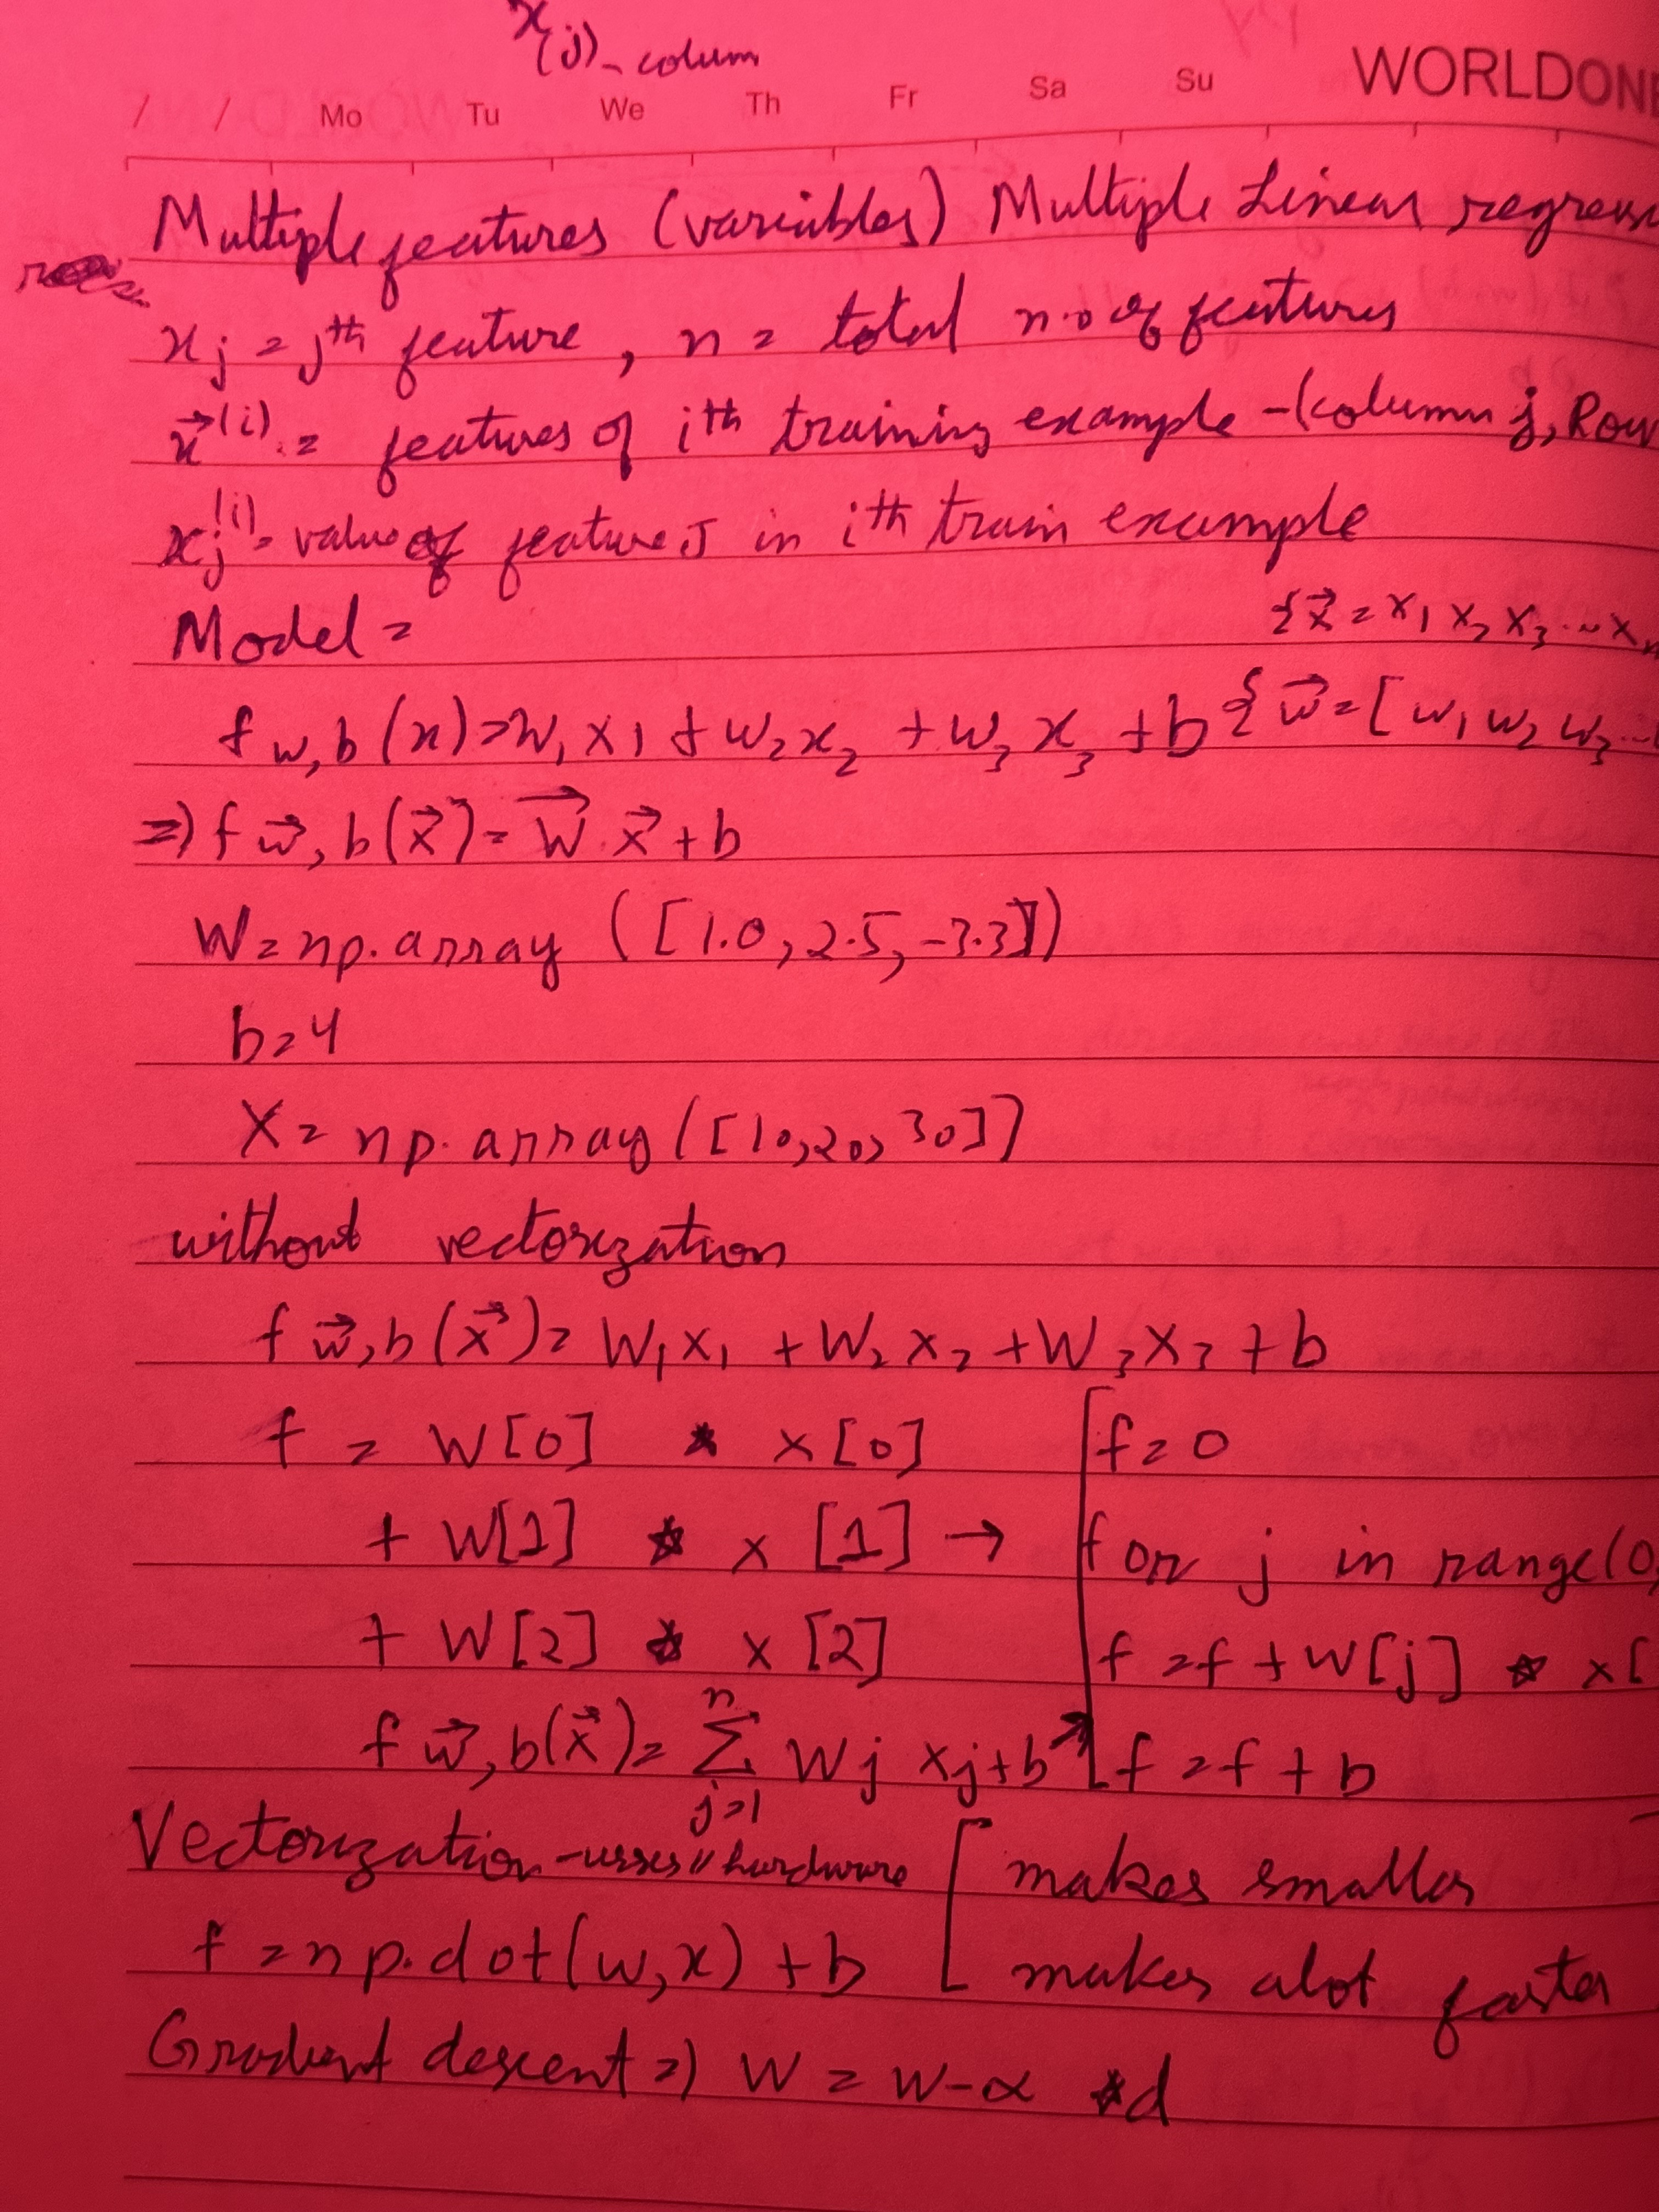 x(j) - colum
/ / Mo Tu We Th Fr Sa Su WORLDONE
Multiple features (variables) Multiple Linear regress
xj = jth feature, n = total n.o of features
x⃗(i) = features of ith training example - (column j, Row
xj(i) = value of feature J in ith train example
Model = {x⃗ = x1 x2 x3 ... xn
fw,b(x) = w1x1 + w2x2 + w3x3 + b { w⃗ = [w1 w2 w3 ...
=) f w⃗,b(x⃗) = w⃗.x⃗ + b
W = np.array ([1.0, 2.5, -3.3])
b = 4
X = np.array([10, 20, 30])
without vectorization
f w⃗,b(x⃗) = W1x1 + W2x2 + W3x3 + b
f = W[0] * x[0] [f = 0
+ W[1] * x[1] → for j in range(0,
+ W[2] * x[2] f = f + W[j] * x[
f w⃗,b(x⃗) = n∑j=1 Wj xj + b f = f + b
Vectorization - usses // hardware [ makes smaller
f = np.dot(w,x) + b makes alot faster
Gradient descent =) W = w - α *d